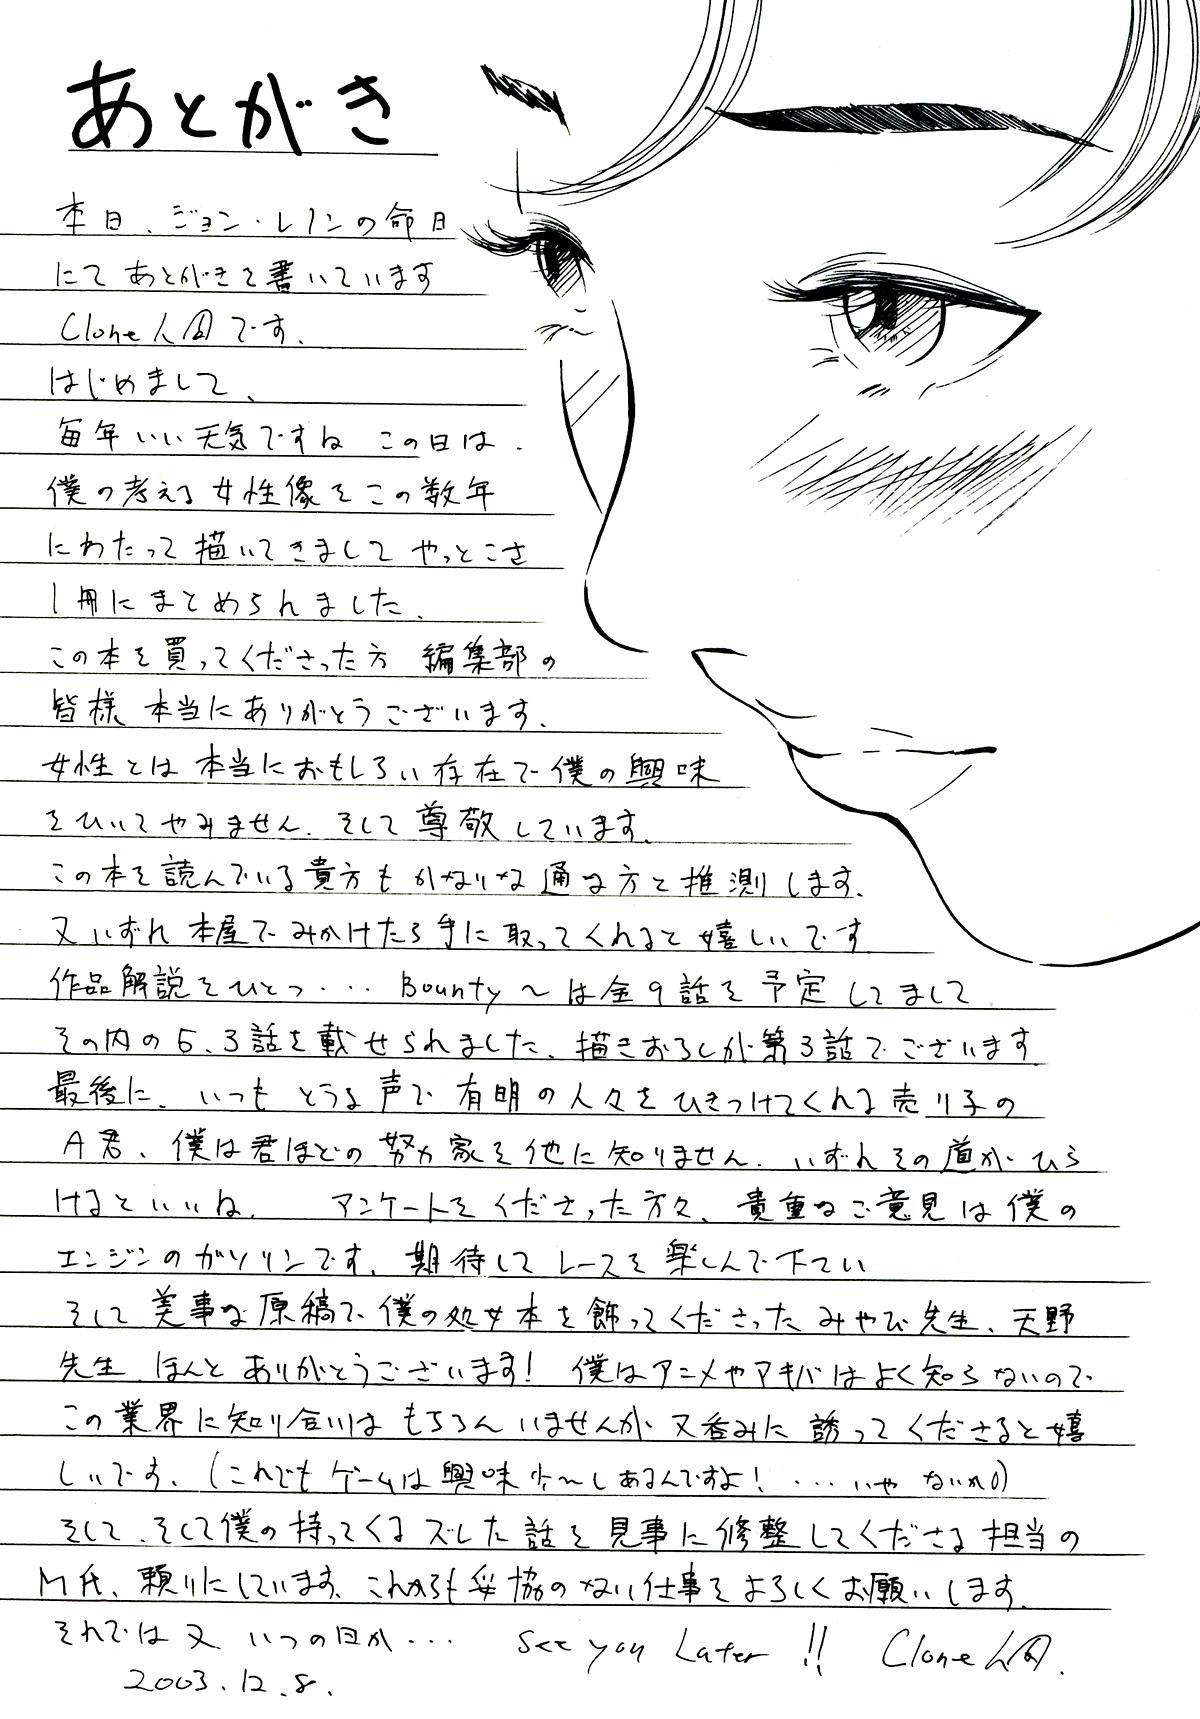 あとがき
本日、ジョン・レノンの命日
にてあとがきを書いています
Clone人間です。
はじめまして、
毎年いい天気ですね この日は、
僕の考える女性像をこの数年
にわたって描いてきまして やっとこさ
1冊にまとめられました、
この本を買ってくださった方 編集部の
皆様 本当にありがとうございます、
女性とは本当におもしろい存在で僕の興味
をひいてやみません、そして尊敬しています、
この本を読んでいる貴方もかなりな通な方と推測します、
又いずれ本屋でみかけたら手に取ってくれると嬉しいです
作品解説をひとつ・・・ Bounty〜は全9話を予定してまして
その内の5、3話を載せられました、描きおろしが第3話でございます
最後に、いつも とうる声で有明の人々をひきつけてくれる売り子の
A君、僕は君ほどの努力家を他に知りません、いずれその道がひら
けるといいね、 アンケートをくださった方々、貴重なご意見は僕の
エンジンのガソリンです、期待してレースを楽しんで下てい
そして美事な原稿で僕の処女本を飾ってくださったみやび先生、天野
先生、ほんとありがとうございます! 僕はアニメやアキバはよく知らないので
この業界に知り合いはもちろんいませんが又呑みに誘ってくださると嬉
しいです、(これでもゲームは興味少〜しあるんですよ!・・・いや ないかも)
そして、そして僕の持ってくるズレた話を見事に修整してくださる担当の
M氏、頼りにしています、これからも妥協のない仕事をよろしくお願いします、
それでは又 いつの日か・・・ See you Later !! Clone人間.
2003.12.8.